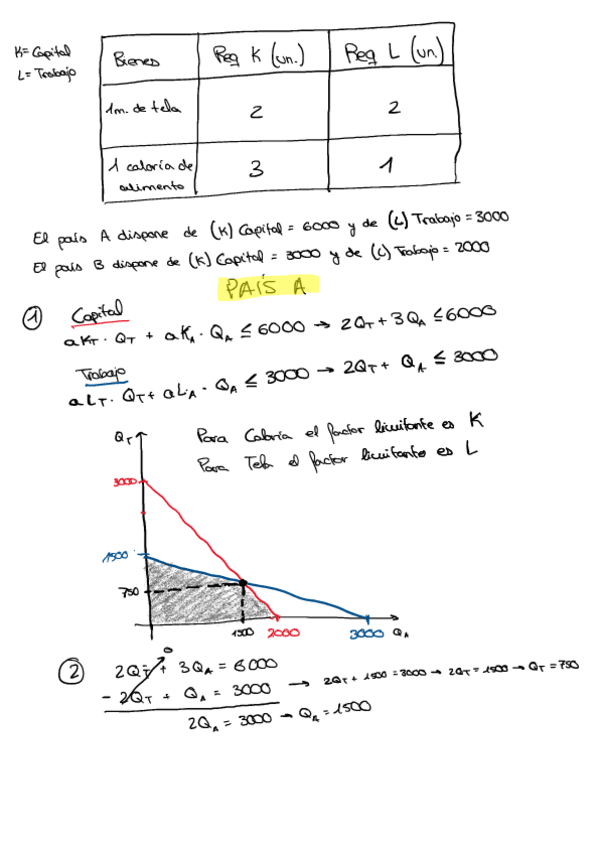 K= Capital
L= Trabajo
Bienes Req K (un.) Req L (un.)
1m. de tela 2 2
1 caloría de alimento 3 1
El país A dispone de (K) Capital = 6000 y de (L) Trabajo = 3000
El país B dispone de (K) Capital = 3000 y de (L) Trabajo = 2000
PAÍS A
① Capital
aKT · QT + aKA · QA ≤ 6000 → 2QT + 3QA ≤ 6000
Trabajo
aLT · QT + aLA · QA ≤ 3000 → 2QT + QA ≤ 3000
Para Caloría el factor limitante es K
Para Tela el factor limitante es L
QT
3000
1500
750
1500 2000 3000 QA
② 2QT + 3QA = 6000
0
- 2QT + QA = 3000 → 2QT + 1500 = 3000 → 2QT = 1500 → QT = 750
2QA = 3000 → QA = 1500